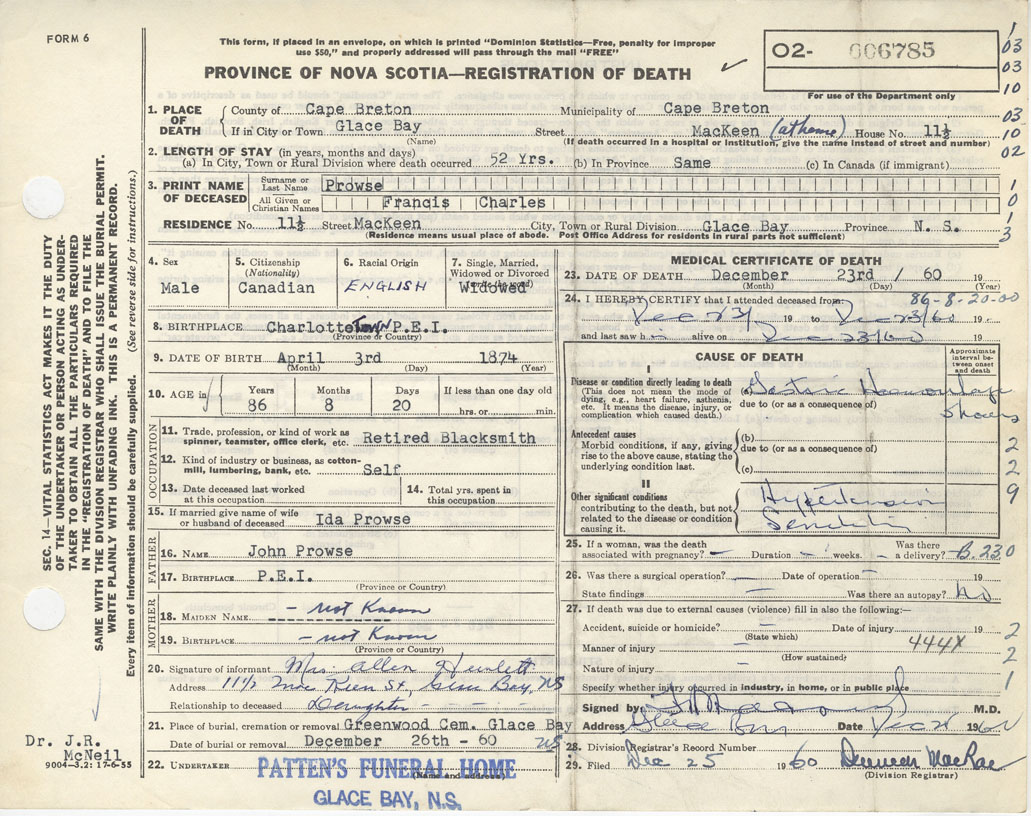 FORM 6
This form, if placed in an envelope, on which is printed "Dominion Statistics—Free, penalty for improper
use $50," and properly addressed will pass through the mail "FREE"
PROVINCE OF NOVA SCOTIA—REGISTRATION OF DEATH ✓
02- 006785
For use of the Department only
1
03
03
10
03
10
02
1
0
1
3
SEC. 14—VITAL STATISTICS ACT MAKES IT THE DUTY
OF THE UNDERTAKER OR PERSON ACTING AS UNDER-
TAKER TO OBTAIN ALL THE PARTICULARS REQUIRED
IN THE "REGISTRATION OF DEATH" AND TO FILE THE
SAME WITH THE DIVISION REGISTRAR WHO SHALL ISSUE THE BURIAL PERMIT.
WRITE PLAINLY WITH UNFADING INK. THIS IS A PERMANENT RECORD.
Every item of information should be carefully supplied. (See reverse side for instructions.)
1. PLACE OF DEATH
County of Cape Breton Municipality of Cape Breton
If in City or Town Glace Bay Street MacKeen (at home) House No. 11½
(Name) (If death occurred in a hospital or institution, give the name instead of street and number)
2. LENGTH OF STAY (in years, months and days)
(a) In City, Town or Rural Division where death occurred 52 Yrs. (b) In Province Same (c) In Canada (if immigrant)
3. PRINT NAME OF DECEASED
Surname or Last Name Prowse
All Given or Christian Names Francis Charles
RESIDENCE No. 11½ Street MacKeen City, Town or Rural Division Glace Bay Province N. S.
(Residence means usual place of abode. Post Office Address for residents in rural parts not sufficient)
4. Sex
Male
5. Citizenship
(Nationality)
Canadian
6. Racial Origin
ENGLISH
7. Single, Married,
Widowed or Divorced
(write the word)
Widowed
8. BIRTHPLACE CharlotteTOWN P.E.I.
(Province or Country)
9. DATE OF BIRTH April 3rd 1874
(Month) (Day) (Year)
10. AGE in
Years Months Days If less than one day old
86 8 20 hrs. or min.
OCCUPATION
11. Trade, profession, or kind of work as
spinner, teamster, office clerk, etc. Retired Blacksmith
12. Kind of industry or business, as cotton-
mill, lumbering, bank, etc. Self
13. Date deceased last worked
at this occupation
14. Total yrs. spent in
this occupation
15. If married give name of wife
or husband of deceased Ida Prowse
FATHER
16. NAME John Prowse
17. BIRTHPLACE P.E.I.
(Province or Country)
MOTHER
18. MAIDEN NAME - not Known
19. BIRTHPLACE - not Known
(Province or Country)
20. Signature of informant Mrs. Allen Hewlett
Address 11½ Mac Keen St, Glace Bay, NS
Relationship to deceased Daughter
21. Place of burial, cremation or removal Greenwood Cem. Glace Bay
Date of burial or removal December 26th - 60 NS
22. UNDERTAKER PATTEN'S FUNERAL HOME
(Name and address)
GLACE BAY, N.S.
Dr. J.R.
McNeil
9004-3.2: 17-6-55
MEDICAL CERTIFICATE OF DEATH
23. DATE OF DEATH December 23rd / 60 19
(Month) (Day) (Year)
86-8-20-00
24. I HEREBY CERTIFY that I attended deceased from:
Dec 23/ 19 to Dec 23/60 19
and last saw h alive on Dec 23/60
CAUSE OF DEATH
Approximate interval between onset and death
I
Disease or condition directly leading to death
(This does not mean the mode of
dying, e.g., heart failure, asthenia,
etc. It means the disease, injury, or
complication which caused death.)
(a) Gastric Hemorrhage
due to (or as a consequence of)
hours
Antecedent causes
Morbid conditions, if any, giving
rise to the above cause, stating the
underlying condition last.
(b)
due to (or as a consequence of)
(c)
2
2
9
II
Other significant conditions
contributing to the death, but not
related to the disease or condition
causing it.
Hypertension
Senility
25. If a woman, was the death
associated with pregnancy? Duration weeks. Was there
a delivery? B.230
26. Was there a surgical operation? Date of operation 19
State findings Was there an autopsy? No
27. If death was due to external causes (violence) fill in also the following:—
Accident, suicide or homicide? Date of injury 19 2
(State which)
Manner of injury 444X 2
(How sustained)
Nature of injury 1
Specify whether injury occurred in industry, in home, or in public place
Signed by M.D.
Address Glace Bay Date Dec 24 1960
28. Division Registrar's Record Number
29. Filed Dec 25 1960 Duncan MacRae
(Division Registrar)